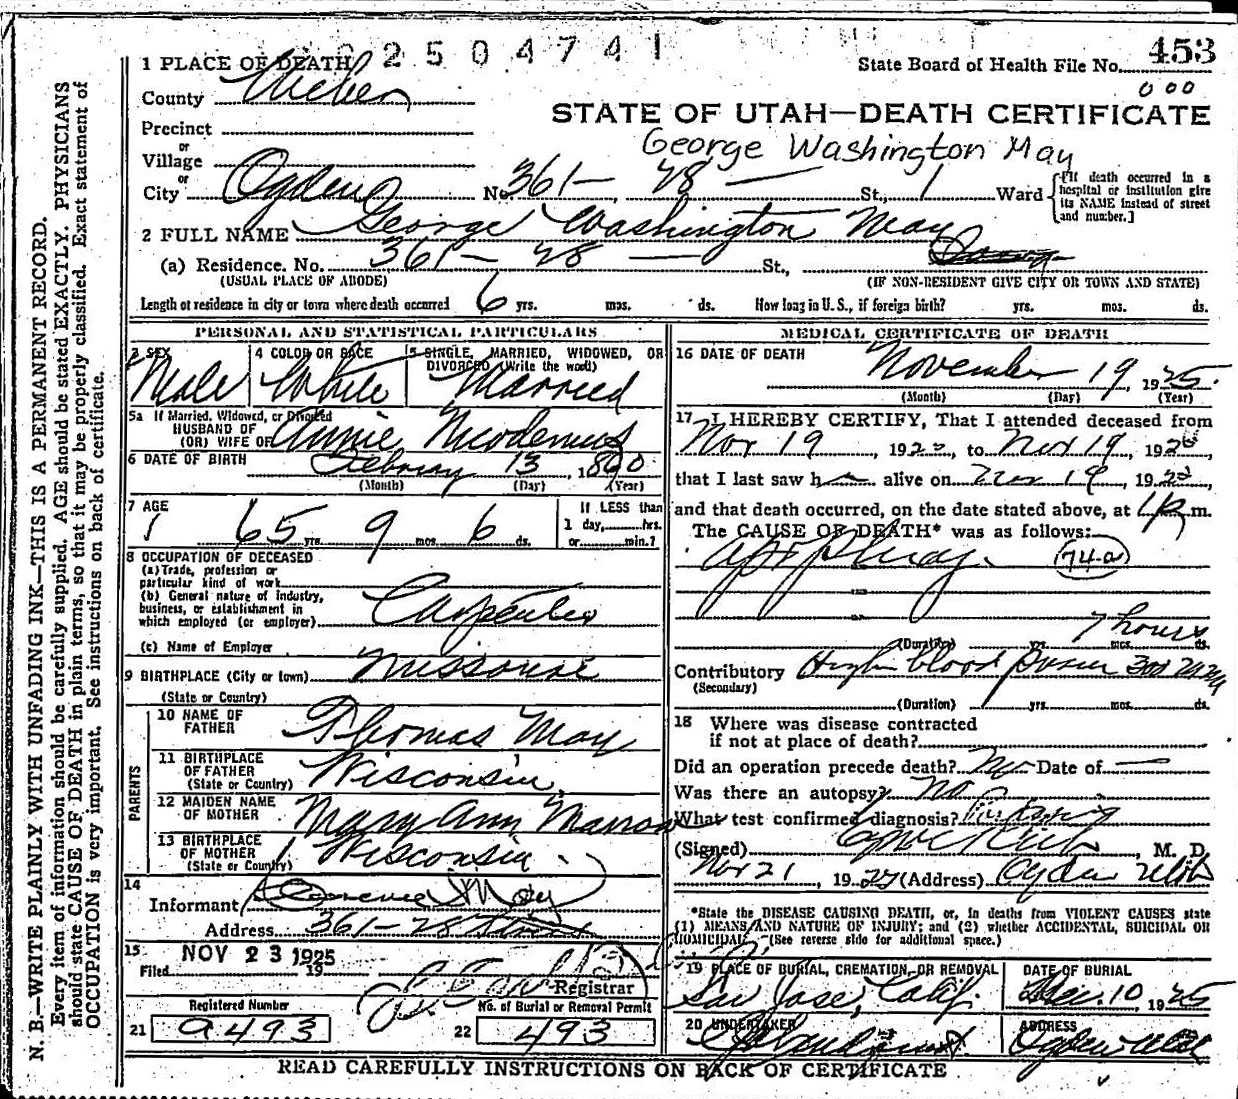 2504741
453
1 PLACE OF DEATH
State Board of Health File No.
000
County Weber
STATE OF UTAH—DEATH CERTIFICATE
Precinct
or
George Washington May
Village
or
City Ogden No. 361- 28 — St., 1 Ward
[If death occurred in a hospital or institution give its NAME instead of street and number.]
2 FULL NAME George Washington May
(a) Residence. No. 361 - 28 — St.,
(USUAL PLACE OF ABODE) (IF NON-RESIDENT GIVE CITY OR TOWN AND STATE)
Length of residence in city or town where death occurred 6 yrs. mos. ds. How long in U.S., if foreign birth? yrs. mos. ds.
PERSONAL AND STATISTICAL PARTICULARS
3 SEX
Male
4 COLOR OR RACE
White
5 SINGLE, MARRIED, WIDOWED, OR
DIVORCED (Write the word)
Married
5a If Married, Widowed, or Divorced
HUSBAND OF
(OR) WIFE OF Annie Nicodemus
6 DATE OF BIRTH February 13 1860
(Month) (Day) (Year)
7 AGE
65 yrs. 9 mos. 6 ds.
If LESS than
1 day, hrs.
or min.?
8 OCCUPATION OF DECEASED
(a) Trade, profession or
particular kind of work
(b) General nature of Industry,
business, or establishment in
which employed (or employer) Carpenter
(c) Name of Employer
9 BIRTHPLACE (City or town) Missouri
(State or Country)
PARENTS
10 NAME OF
FATHER Thomas May
11 BIRTHPLACE
OF FATHER Wisconsin
(State or Country)
12 MAIDEN NAME
OF MOTHER Mary Ann Marrow
13 BIRTHPLACE
OF MOTHER Wisconsin
(State or Country)
14
Informant May
Address 361-28
15
Filed NOV 23 1925
19
Registrar
Registered Number
21 a493
No. of Burial or Removal Permit
22 493
MEDICAL CERTIFICATE OF DEATH
16 DATE OF DEATH
November 19, 1925
(Month) (Day) (Year)
17 I HEREBY CERTIFY, That I attended deceased from
Nov 19, 192 , to Nov 19, 1925
that I last saw h alive on Nov 19, 192
and that death occurred, on the date stated above, at m.
The CAUSE OF DEATH* was as follows:
Apoplexy. 74-a
7 hours
(Duration) yrs. mos. ds.
Contributory High blood
(Secondary)
(Duration) yrs. mos. ds.
18 Where was disease contracted
if not at place of death?
Did an operation precede death? No Date of —
Was there an autopsy? No
What test confirmed diagnosis?
(Signed) , M. D.
Nov 21, 19 (Address) Ogden Utah
*State the DISEASE CAUSING DEATH, or, in deaths from VIOLENT CAUSES state
(1) MEANS AND NATURE OF INJURY; and (2) whether ACCIDENTAL, SUICIDAL OR
HOMICIDAL. (See reverse side for additional space.)
19 PLACE OF BURIAL, CREMATION, OR REMOVAL
San Jose, Calif.
DATE OF BURIAL
Dec. 10, 1925
20 UNDERTAKER
ADDRESS
Ogden Utah
READ CAREFULLY INSTRUCTIONS ON BACK OF CERTIFICATE
N. B.—WRITE PLAINLY WITH UNFADING INK—THIS IS A PERMANENT RECORD.
Every item of information should be carefully supplied. AGE should be stated EXACTLY. PHYSICIANS
should state CAUSE OF DEATH in plain terms, so that it may be properly classified. Exact statement of
OCCUPATION is very important. See instructions on back of certificate.